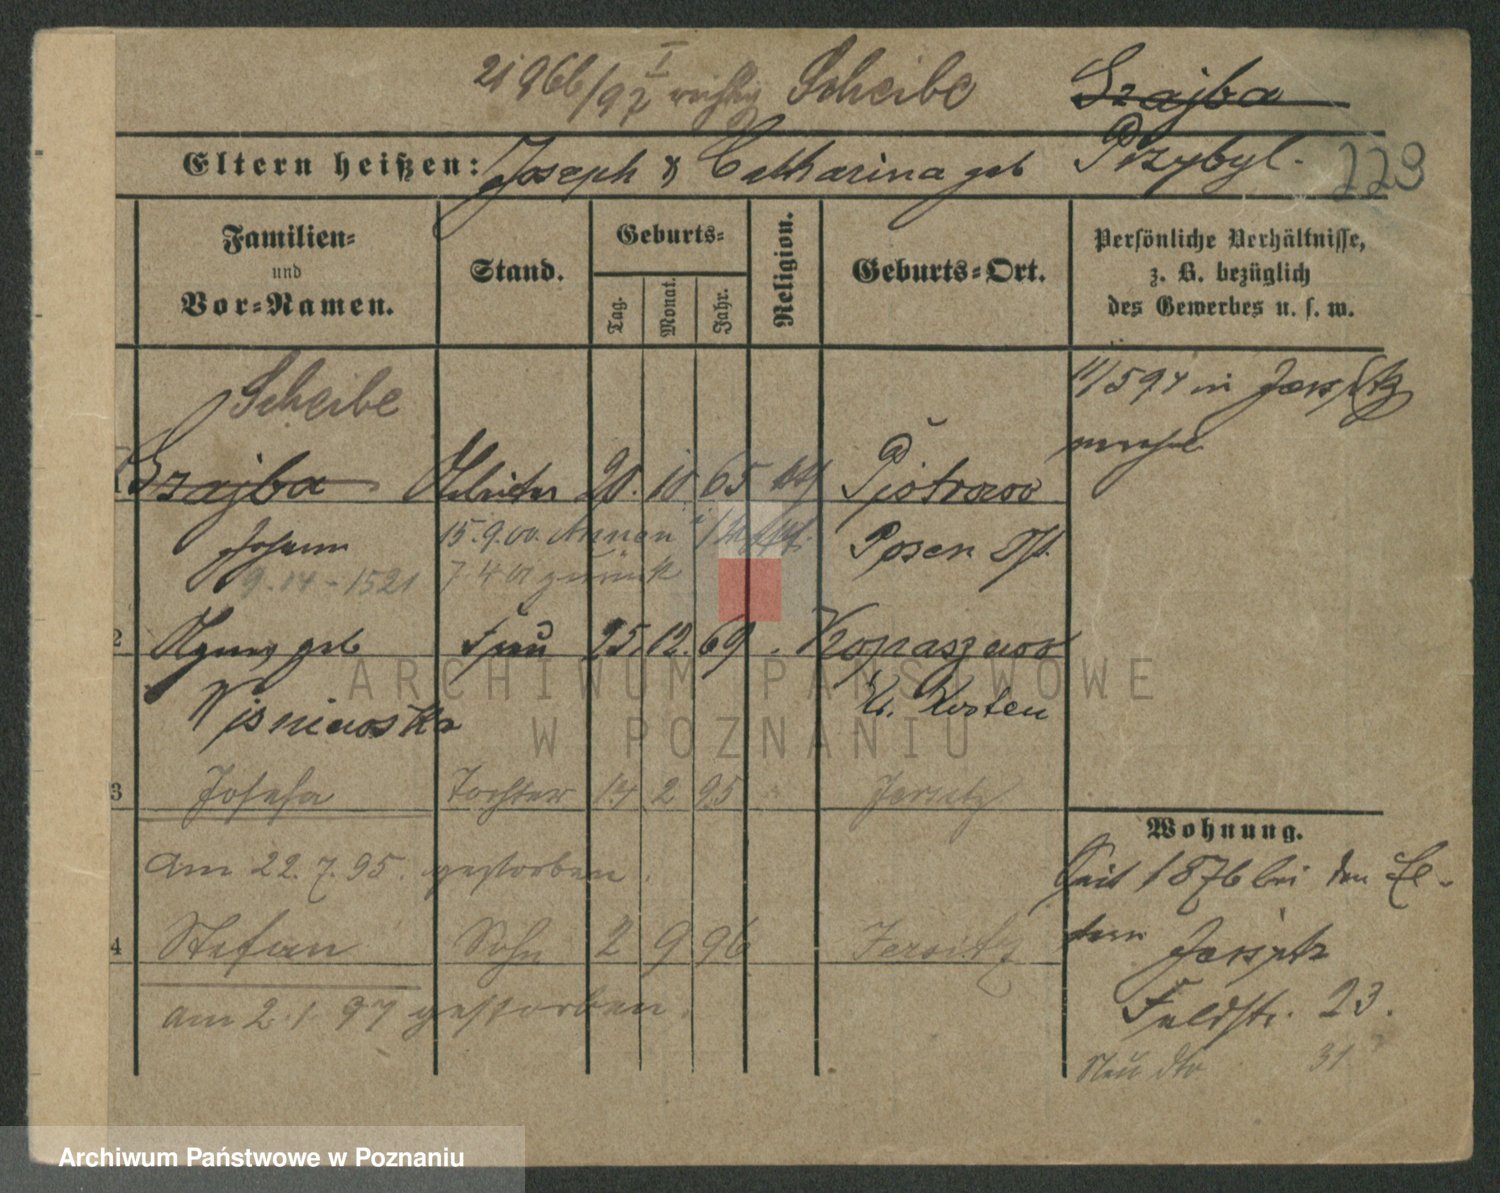 21966/97 I richtig Scheibe Szajba
Eltern heißen: Joseph & Catharina geb Przybyl.
223
Familien=
und
Vor=Namen.
Stand.
Geburts=
Tag.
Monat.
Jahr.
Religion.
Geburts=Ort.
Persönliche Verhältnisse,
z. B. bezüglich
des Gewerbes u. s. w.
Scheibe
Szajba Arbeiter 20. 10 65 kth Piotrowo
Johann 15.9.00. Posen O/.
9.14-1521 7.4 01 zurück
11/5 94 in Jersitz
2 Agnes geb Frau 25. 12. 69 Kopaszewo
Wisniewska Kr. Kosten
3 Josefa Tochter 14 2 95 Jersitz
am 22.7.95. gestorben.
4 Stefan Sohn 2 9 96 Jersitz
am 2.1 97 gestorben.
Wohnung.
Seit 1876 bei den El-
tern Jersitz
Feldstr. 23.
Neu dto 31
ARCHIWUM PAŃSTWOWE
W POZNANIU
Archiwum Państwowe w Poznaniu